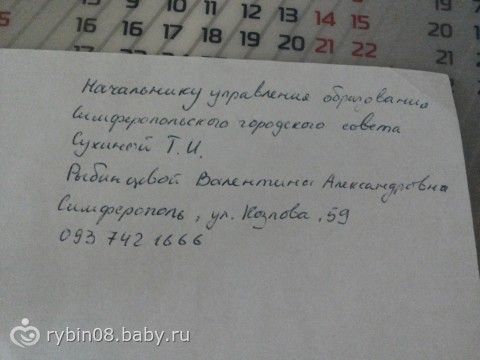 12 13 14 15
19 20 21 22
Начальнику управления образования
Симферопольского городского совета
Сухиной Т.И.
Рыбинцевой Валентина Александровна
Симферополь, ул. Козлова, 59
093 742 1666
rybin08.baby.ru